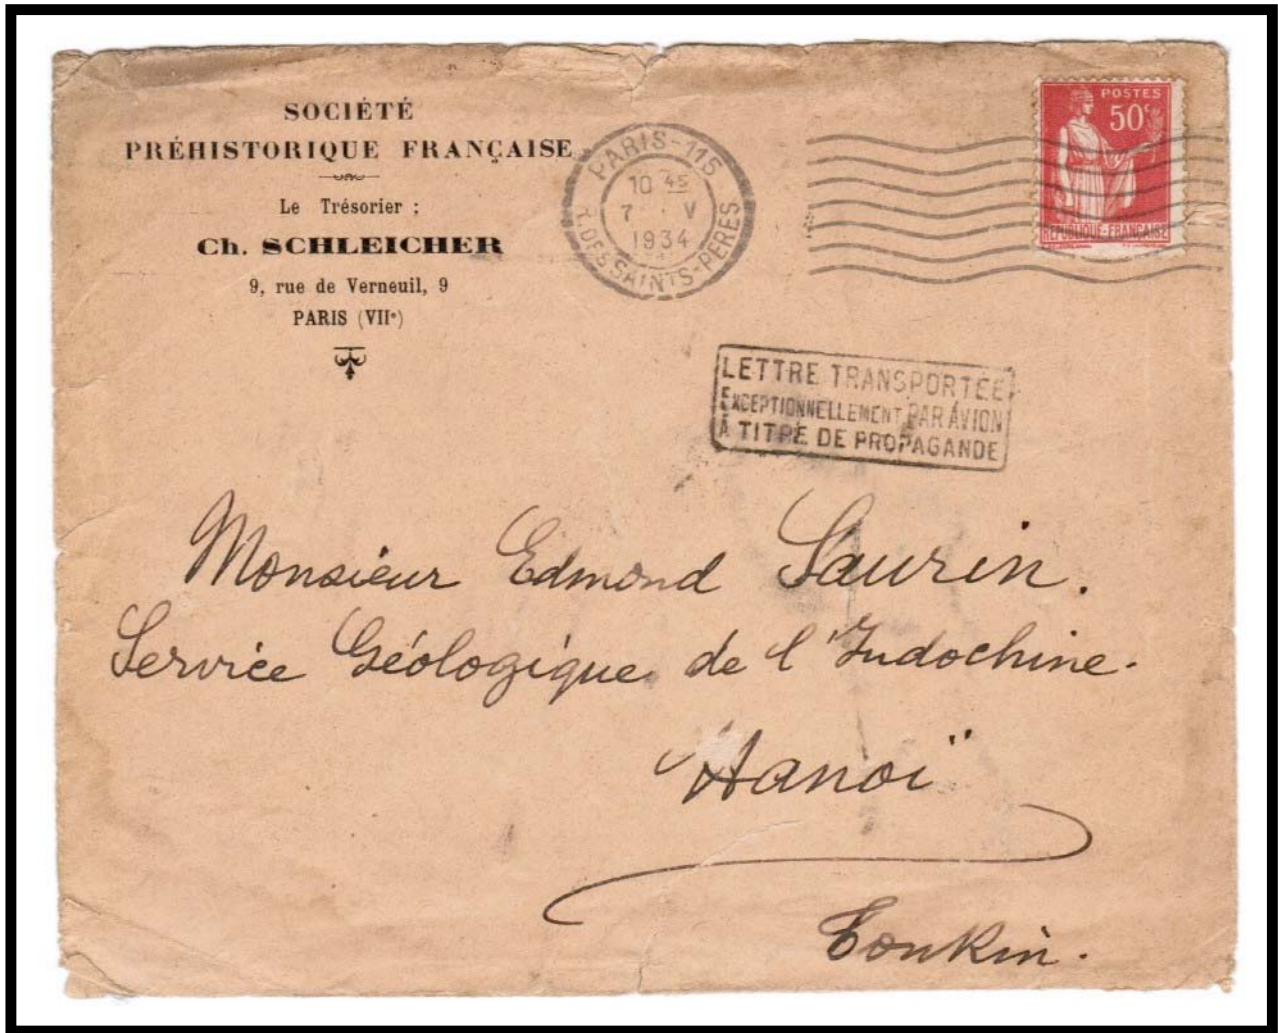 SOCIÉTÉ
PRÉHISTORIQUE FRANÇAISE
Le Trésorier :
Ch. SCHLEICHER
9, rue de Verneuil, 9
PARIS (VIIe)
PARIS-115
10 45
7 V
1934
R. DES SAINTS-PÈRES
POSTES
50c
REPUBLIQUE-FRANÇAISE
LETTRE TRANSPORTÉE
EXCEPTIONNELLEMENT PAR AVION
À TITRE DE PROPAGANDE
Monsieur Edmond Saurin.
Service Géologique de l'Indochine.
Hanoï
Tonkin.